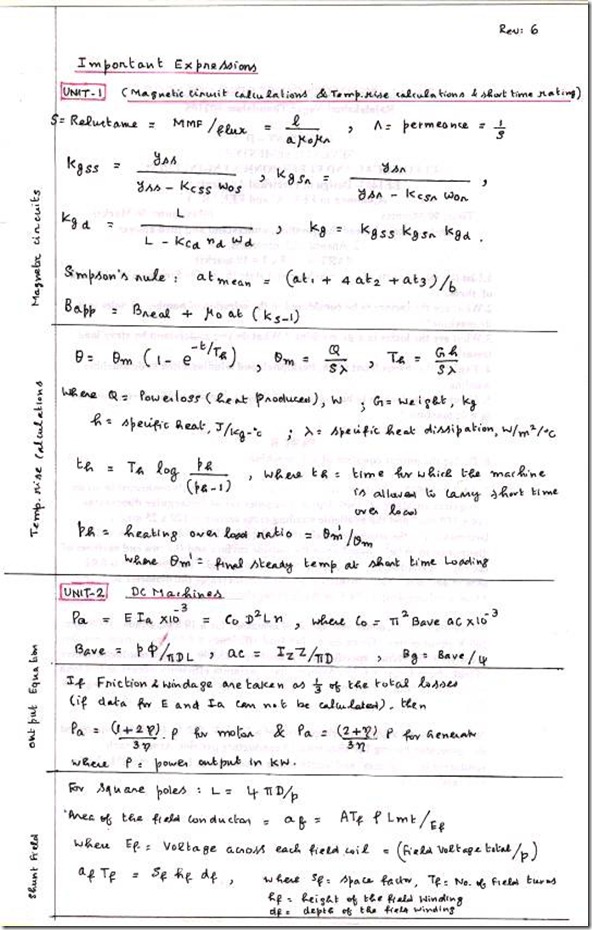 Rev: 6
Important Expressions
UNIT-1 (Magnetic circuit calculations & Temp. rise calculations & short time rating)
S = Reluctance = MMF/flux = l / aμ₀μr , Λ = permeance = 1/S
Kgss = yss / (yss - Kcss wos) , Kgsr = ysr / (ysr - Kcsr wor) ,
Kgd = L / (L - Kcd nd wd) , Kg = Kgss Kgsr Kgd .
Magnetic circuits
Simpson's rule : at mean = (at1 + 4 at2 + at3)/6
Bapp = Breal + μ₀ at (Ks-1)
θ = θm (1 - e^-t/Th) , θm = Q / Sλ , Th = Gh / Sλ
Where Q = Power loss (heat produced), W ; G = weight, kg
h = specific heat, J/kg-°c ; λ = specific heat dissipation, W/m²/°c
Temp. rise calculations
th = Th log ph / (ph-1) , where th = time for which the machine
is allowed to carry short time
over load
ph = heating over load ratio = θm'/θm
where θm' = final steady temp at short time loading
UNIT-2 DC Machines
Pa = E Ia x10^-3 = Co D²Ln , where Co = π² Bave ac x10^-3
Bave = pΦ/πDL , ac = Iz Z/πD , Bg = Bave/ψ
output Equation
If Friction & windage are taken as 1/3 of the total losses
(if data for E and Ia can not be calculated), then
Pa = (1+2η)/3η . P for motor & Pa = (2+η)/3η P for Generator
where P = power output in KW.
For Square poles : L = ψ πD/p
Area of the field conductor = af = ATf ρ Lmt/Ef
where Ef = Voltage across each field coil = (Field Voltage total/p)
Shunt Field
af Tf = Sf hf df , where Sf = space factor, Tf = No. of Field turns
hf = height of the field winding
df = depth of the field winding